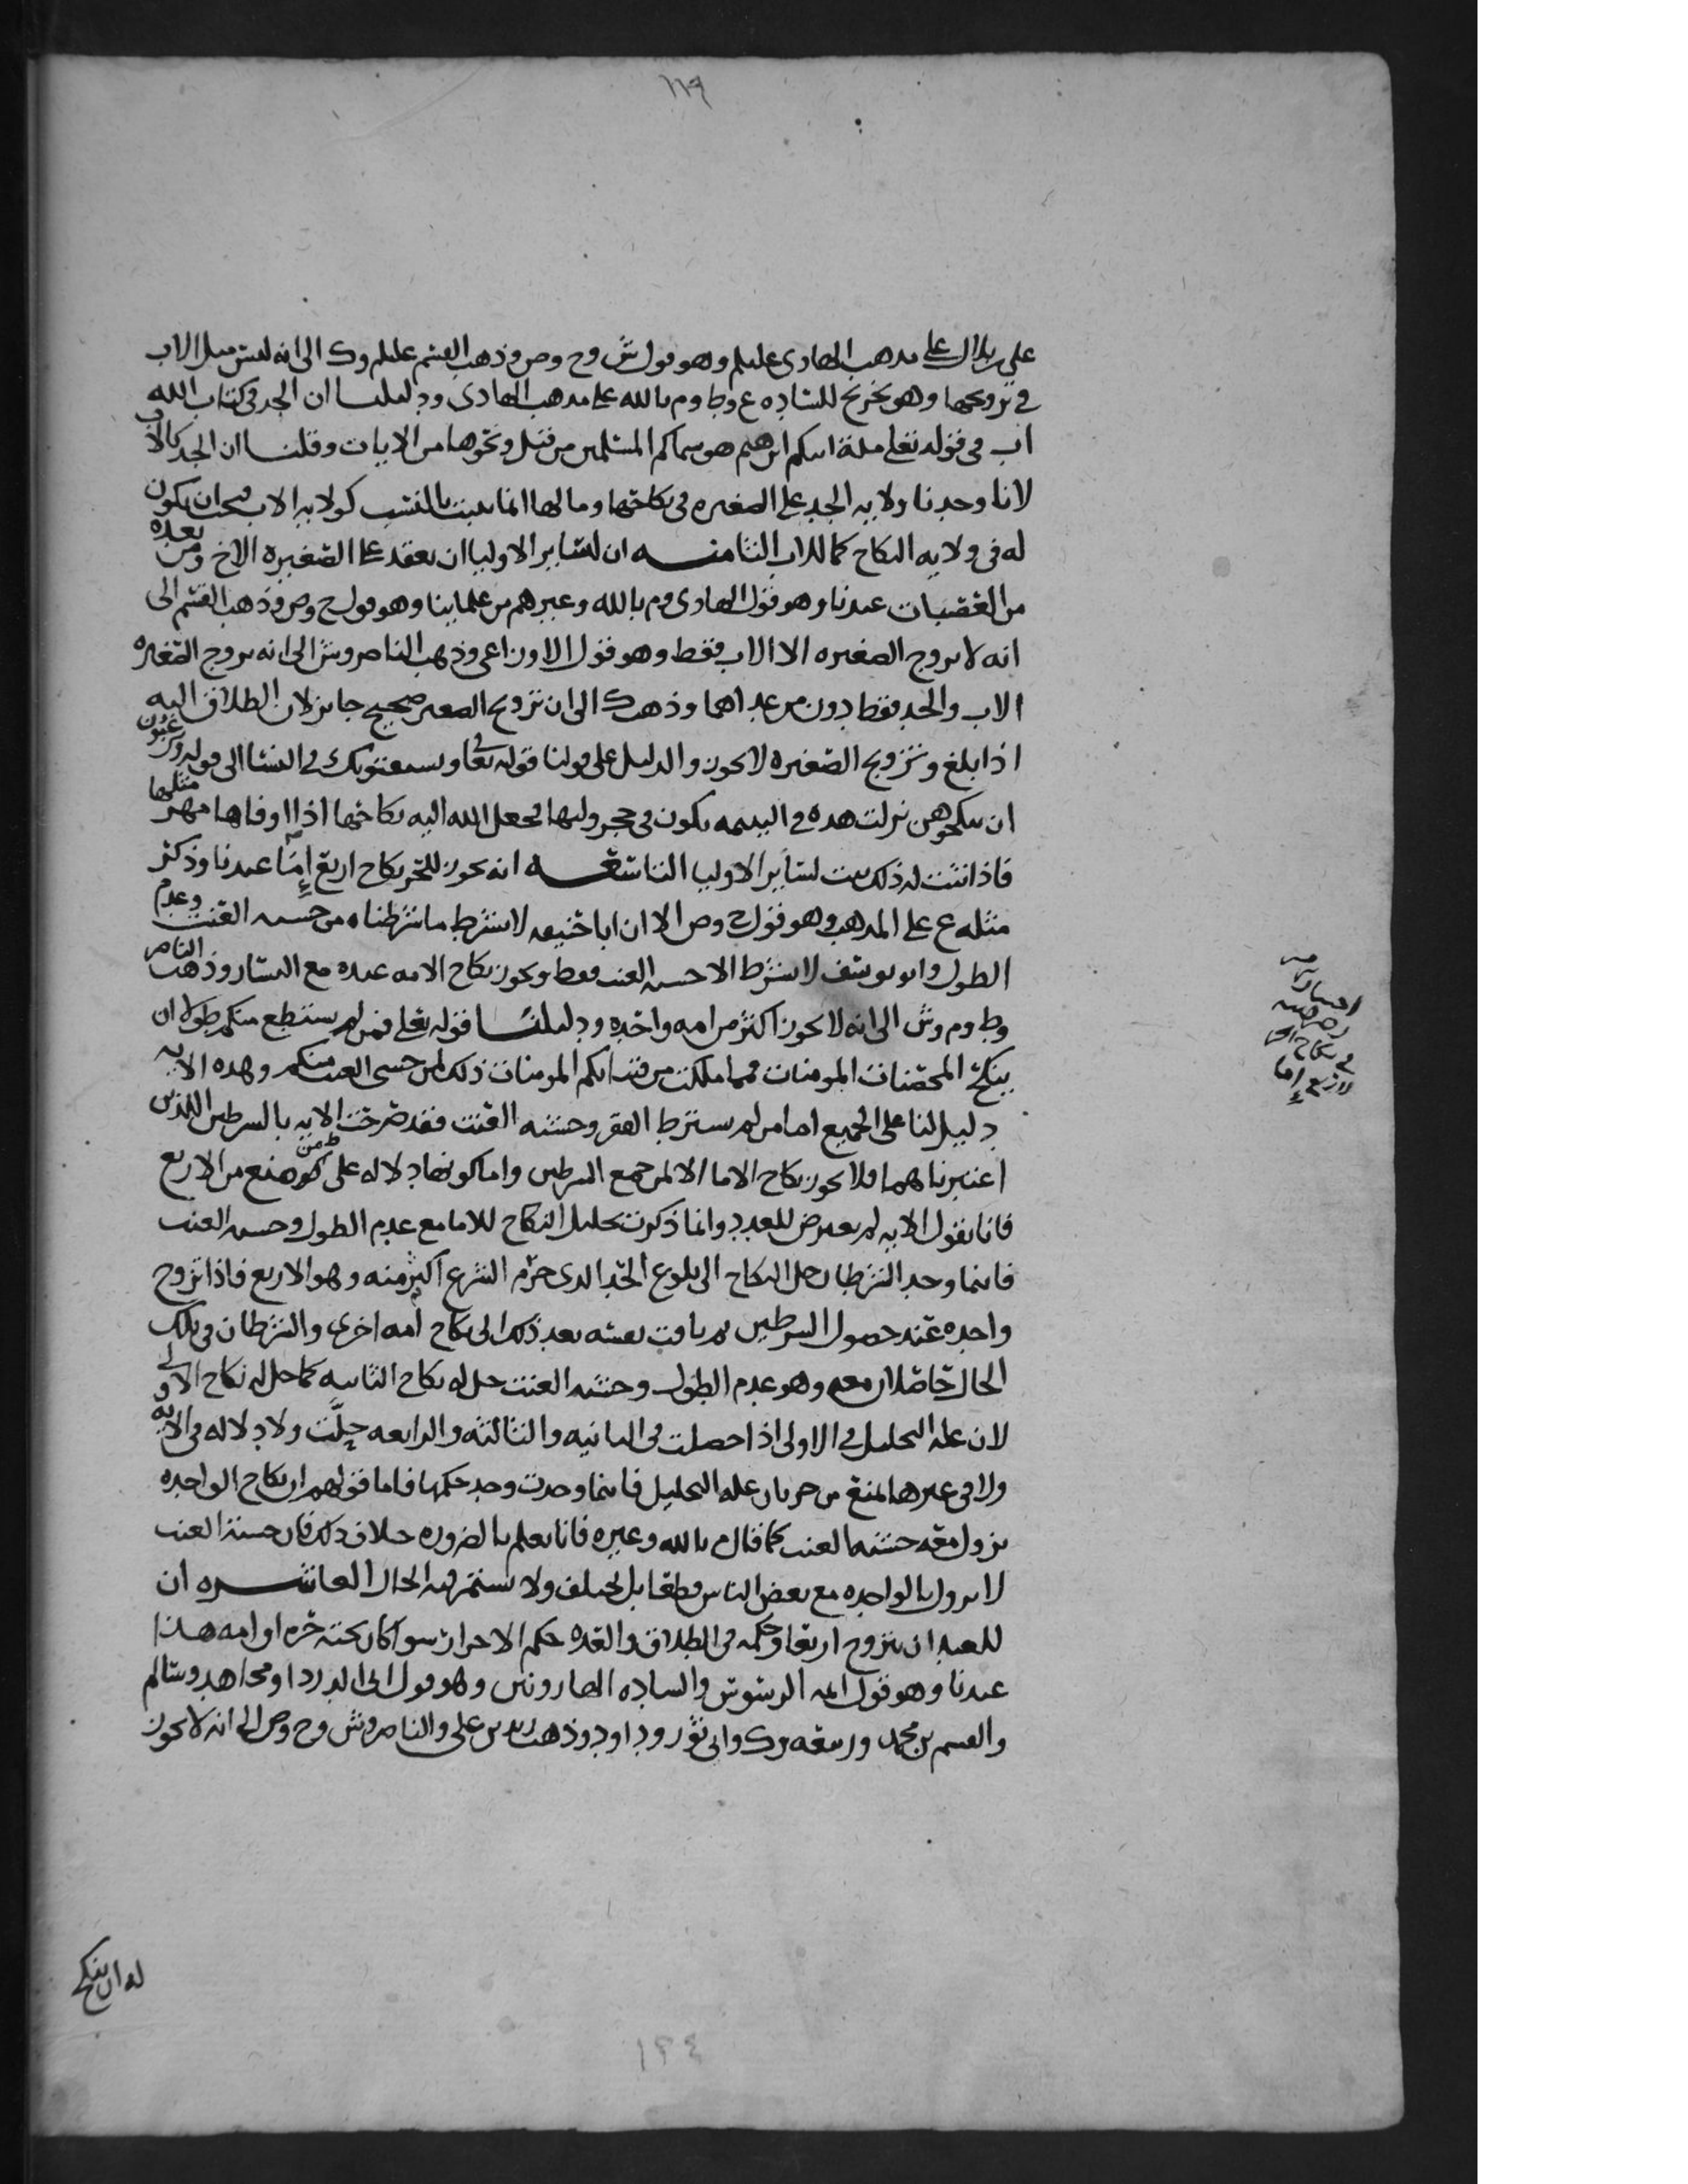 ١١٩
علي بلال على مذهب الهادي عليلم وهو قول ش وح وص وذهب القسم عليلم وك الى انه ليس مثل الاب
في تزويجها وهو تخريج للساده ع وط وم بالله على مذهب الهادي ودليلنا ان الجد في كتاب الله
اب في قوله تعلى ملة ابيكم ابرهيم هو سماكم المسلمين من قبل ونحوها من الايات وقلنا ان الجد كالاب
لانا وجدنا ولايه الجد على الصغيره في نكاحها ومالها انما يثبت بالنسب كولايه الاب فيجب ان يكون
له في ولايه النكاح كما للاب الثامنه ان لساير الاوليا ان يعقد على الصغيره الاخ ومن بعده
من العصبات عندنا وهو قول الهادي وم بالله وغيرهم من علماينا وهو قول ح وص وذهب القسم الى
انه لا يزوج الصغيره الا الاب فقط وهو قول الاوزاعي وذهب الناصر وش الى انه يزوج الصغيره
الاب والجد فقط دون من عداهما وذهب ك الى ان تزويج الصغير صحيح جايز لان الطلاق اليه
اذا بلغ وتزويج الصغيره لا يجوز والدليل على قولنا قوله تعا ويستفتونك في النسا الى قوله وترغبون
ان تنكحوهن نزلت هذه في اليتيمه يكون في حجر وليها فجعل الله اليه نكاحها اذا اوفاها مهر مثلها
فاذا ثبت له ذلك ثبت لساير الاوليا التاسعه انه يجوز للحر نكاح اربع إمآ عندنا وذكر
مثله ع على المذهب وهو قول ح وص الا ان ابا حنيفه لا يشترط ما شرطناه من خشيه العنت وعدم
الطول وابو يوسف لا يشترط الا خشيه العنت فقط ويجوز نكاح الامه عنده مع اليسار وذهب الناصر
وط وم وش الى انه لا يجوز اكثر من امه واحده ودليلنا قوله تعلى فمن لم يستطع منكم طولا ان
ينكح المحصنات المومنات فمما ملكت من فتياتكم المومنات ذلك لمن خشي العنت منكم وهذه الايه
دليل لنا على الجميع اما من لم يشترط الفقر وخشيه العنت فقد صرحت الايه بالشرطين اللذين
اعتبرناهما فلا يجوز نكاح الاما الا لمن جمع الشرطين واما كونها دلاله على من منع من الاربع
فانا نقول الايه لم تعترض للعدد وانما ذكرت تحليل النكاح للاما مع عدم الطول وخشيه العنت
فاينما وجد الشرطان حل النكاح الى بلوغ الحد الذي حرم الشرع اكثر منه وهو الاربع فاذا تزوج
واحده عند حصول الشرطين ثم تاقت نفسه بعد ذلك الى نكاح امه اخرى والشرطان في تلك
الحال حاصلان معه وهو عدم الطول وخشيه العنت حل له نكاح الثانيه كما حل له نكاح الاولى
لان عله التحليل في الاولى اذا حصلت في الثانيه والثالثه والرابعه حلّت ولا دلاله في الايه
ولا في غيرها لمنع من جريان عله التحليل فاينما وجدت وجد حكمها فاما قولهم ان نكاح الواحده
يزول معه خشيه العنت كما قال م بالله وغيره فانا نعلم بالضروره خلاف ذلك فان خشية العنت
لا يزول بالواحده مع بعض الناس قطعا بل يختلف ولا يستمر فيه الحال العاشره ان
للعبد ان يتزوج اربعا وحكمه في الطلاق والعده حكم الاحرار سوا كان تحته حره او امه هذا
عندنا وهو قول ايمه الرسوس والساده الهارونيين وهو قول ابي الدردا ومجاهد وسالم
والقسم بن محمد وربيعه وك وابي ثور وداود وذهب زيد بن علي والناصر وش وح وص الى انه لا يجوز
له ان ينكح
في نكاح الحر
لاربع إما
١٢٤